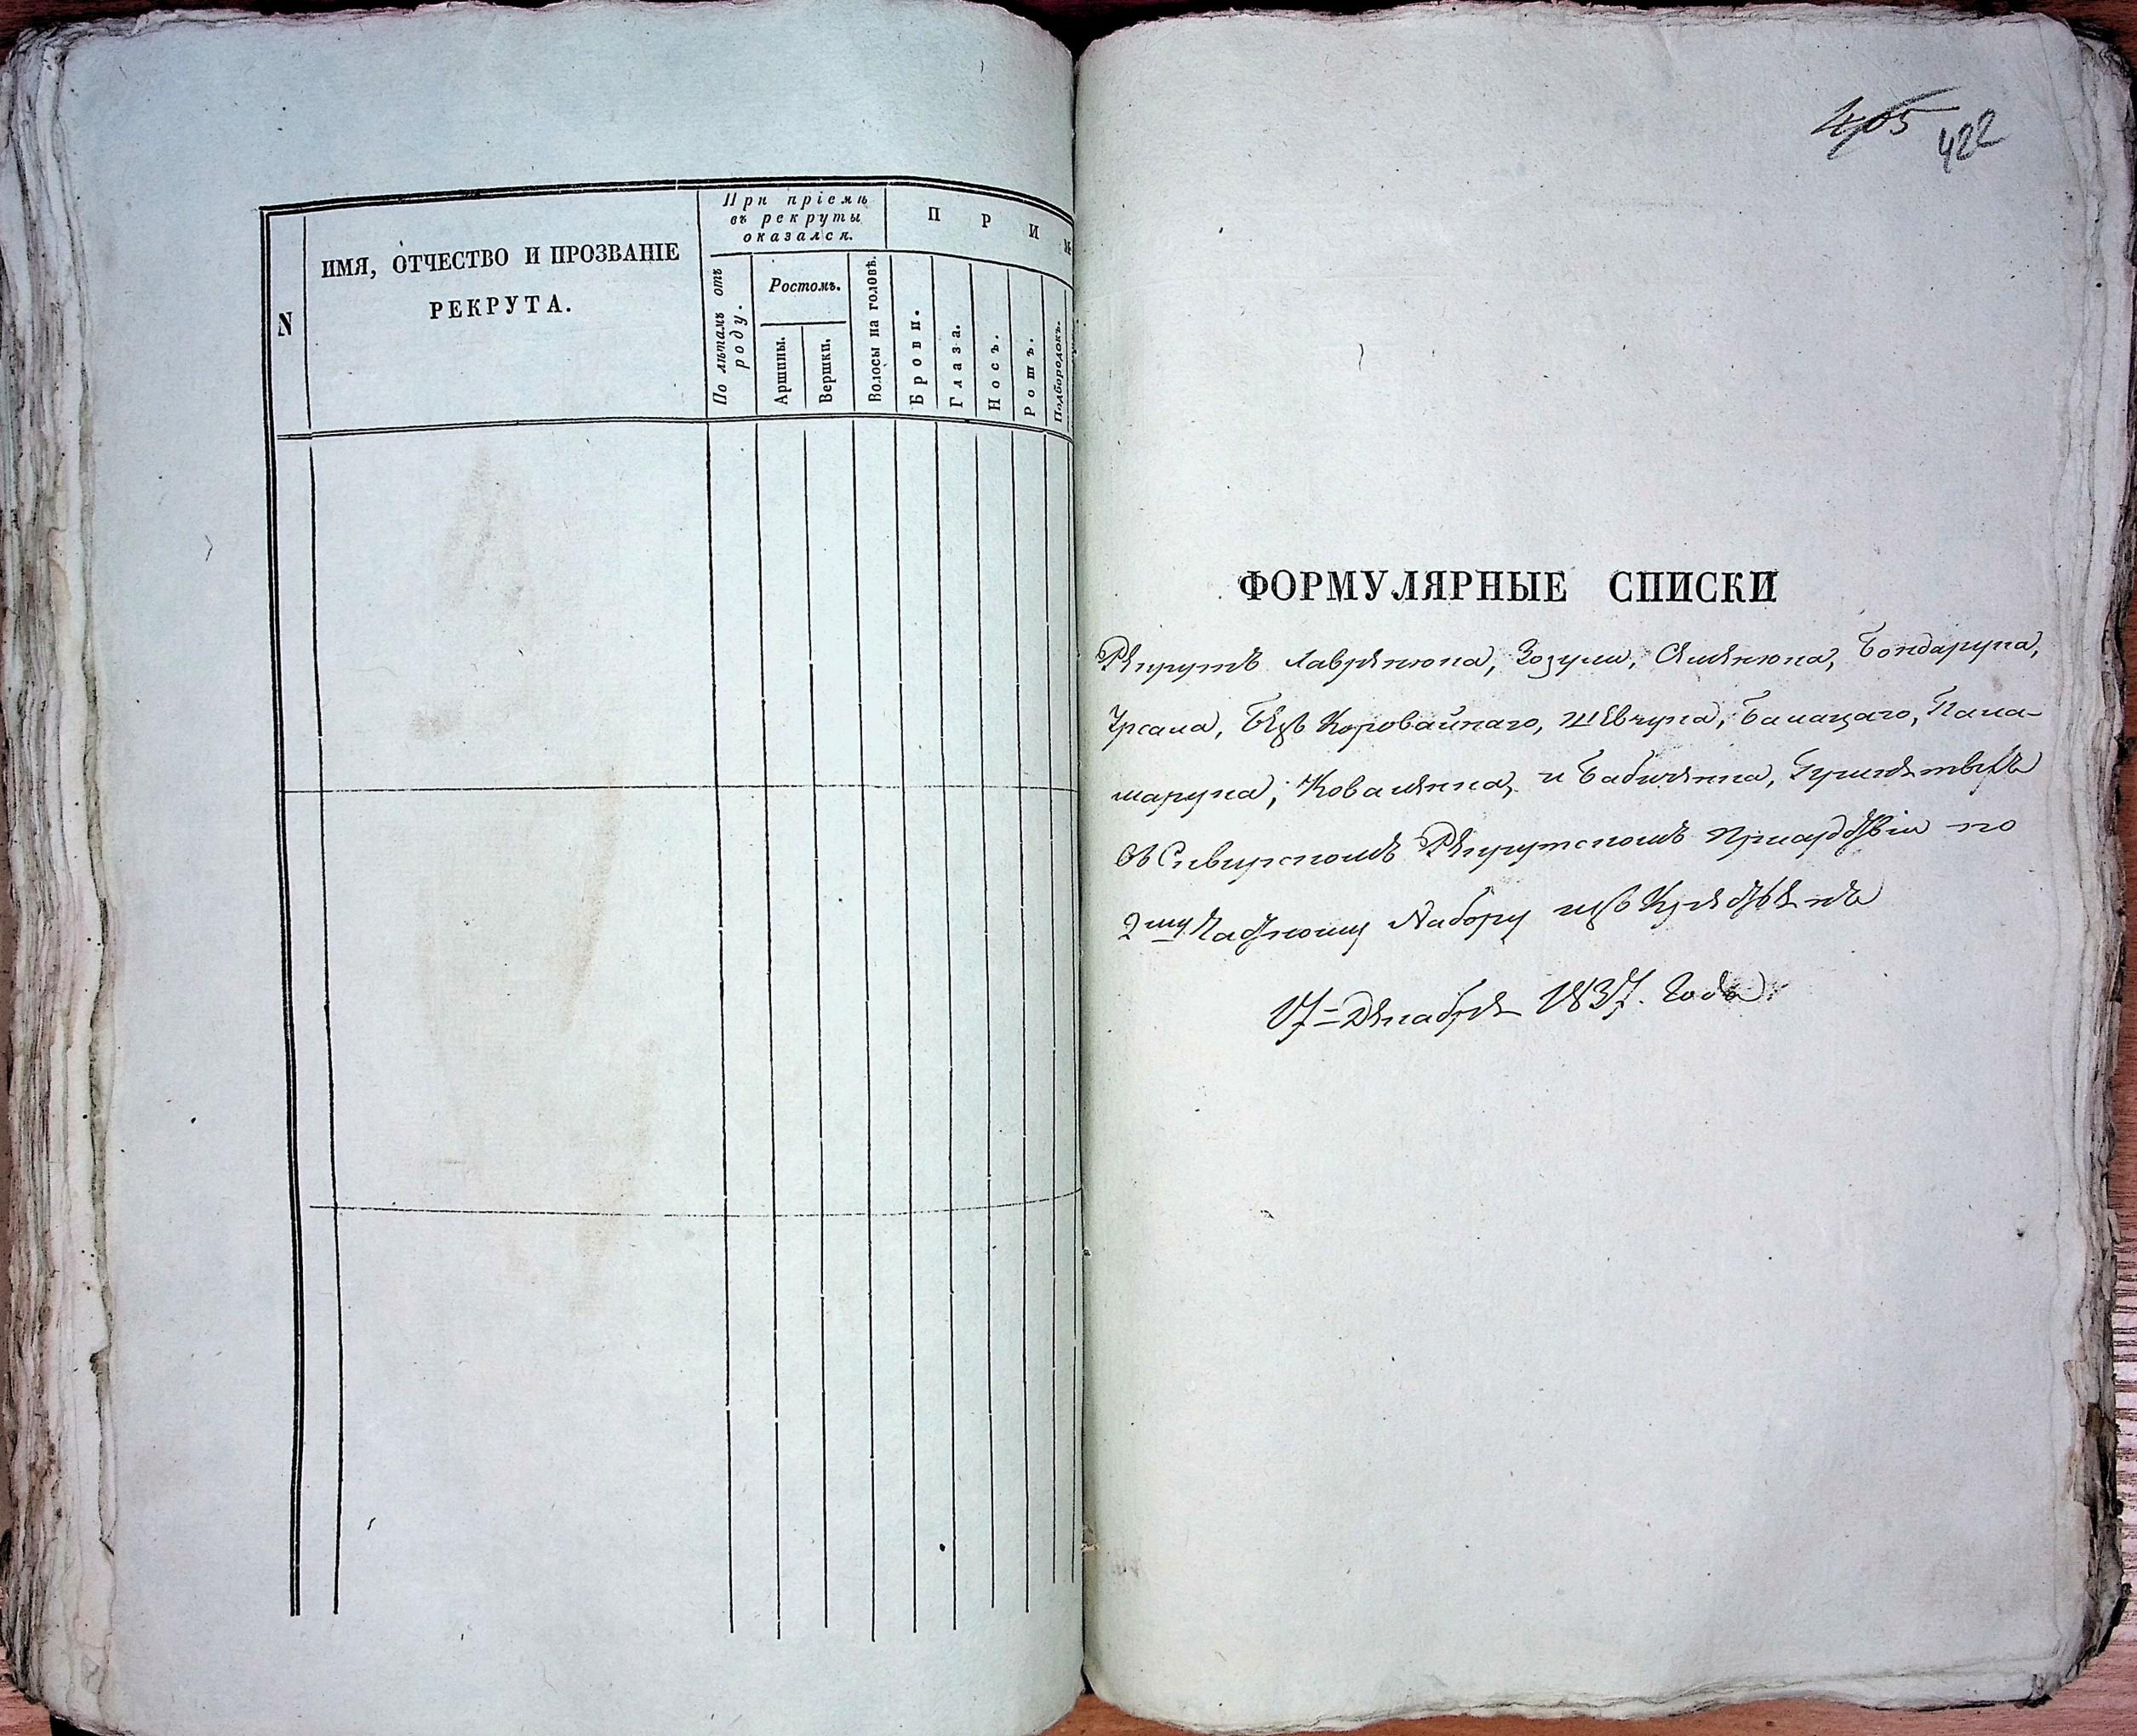 N
ИМЯ, ОТЧЕСТВО И ПРОЗВАНІЕ
РЕКРУТА.
При пріемѣ
въ рекруты
оказался.
По лѣтамъ отъ
роду.
Ростомъ.
Аршины.
Вершки.
Волосы на головѣ.
П Р И М
Брови.
Глаза.
Носъ.
Ротъ.
Подбородокъ.
405
422
ФОРМУЛЯРНЫЕ СПИСКИ
Рекрутъ Лавренюка, Зозули, Семенюка, Бондарука,
Урсала, Коровайнаго, Шевчука, Балацаго, Пала-
марука, Коваленка, и Бабиченка,
въ Сквирскомъ Рекрутскомъ Присудствіи по
2му Частному Набору изъ
17 = Декабря 1837. Года.